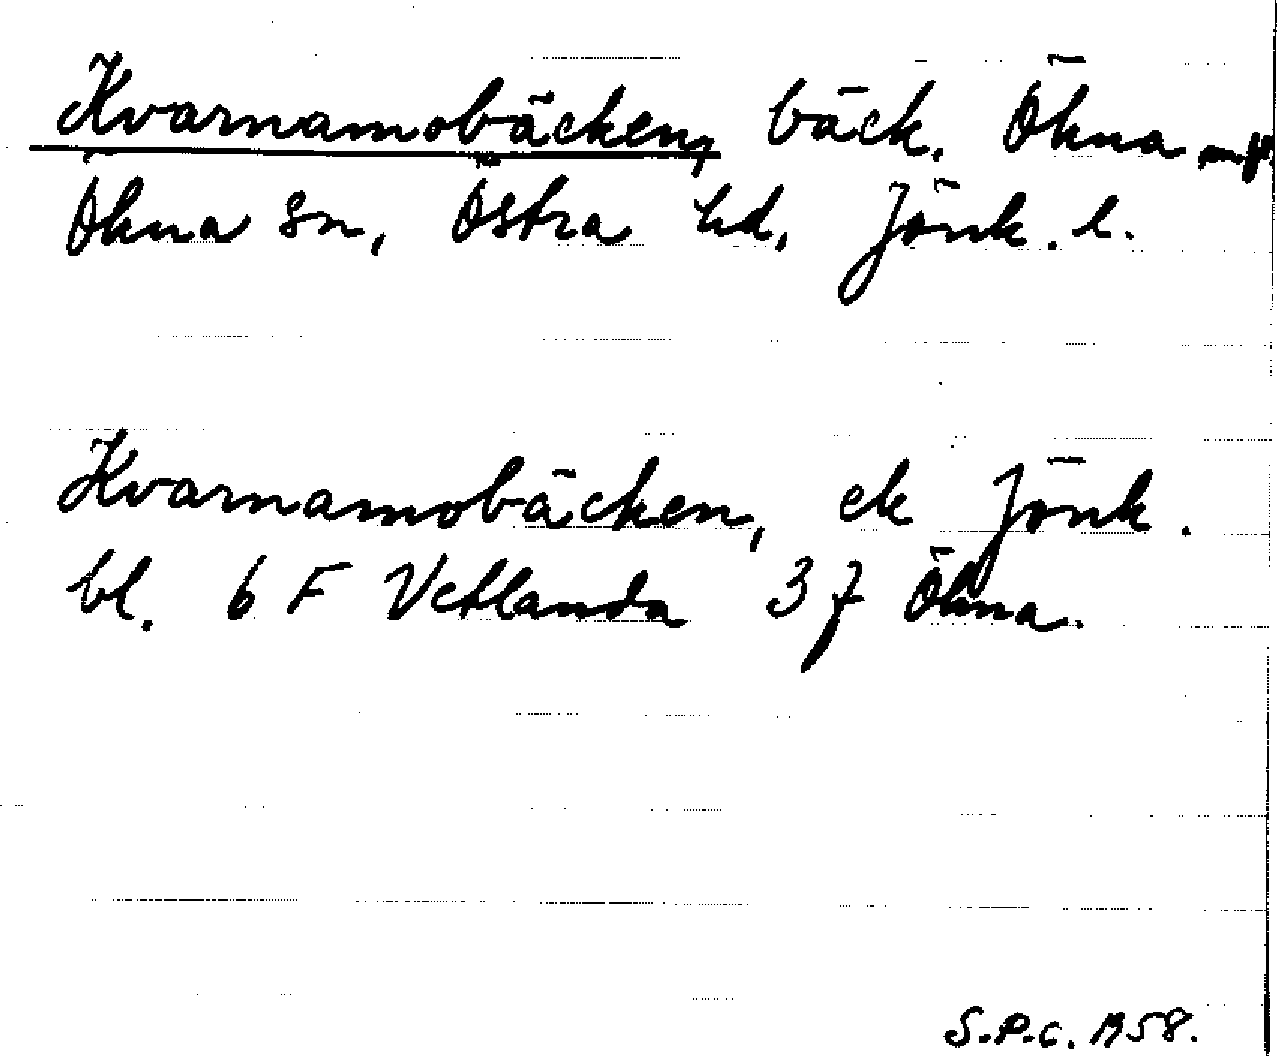 Kvarnamobäcken, bäck. Ökna
Ökna sn, Östra hd, Jönk. l.
Kvarnamobäcken, ek Jönk.
bl. 6 F Vetlanda 3 f Ökna.
S.P.C. 1958.